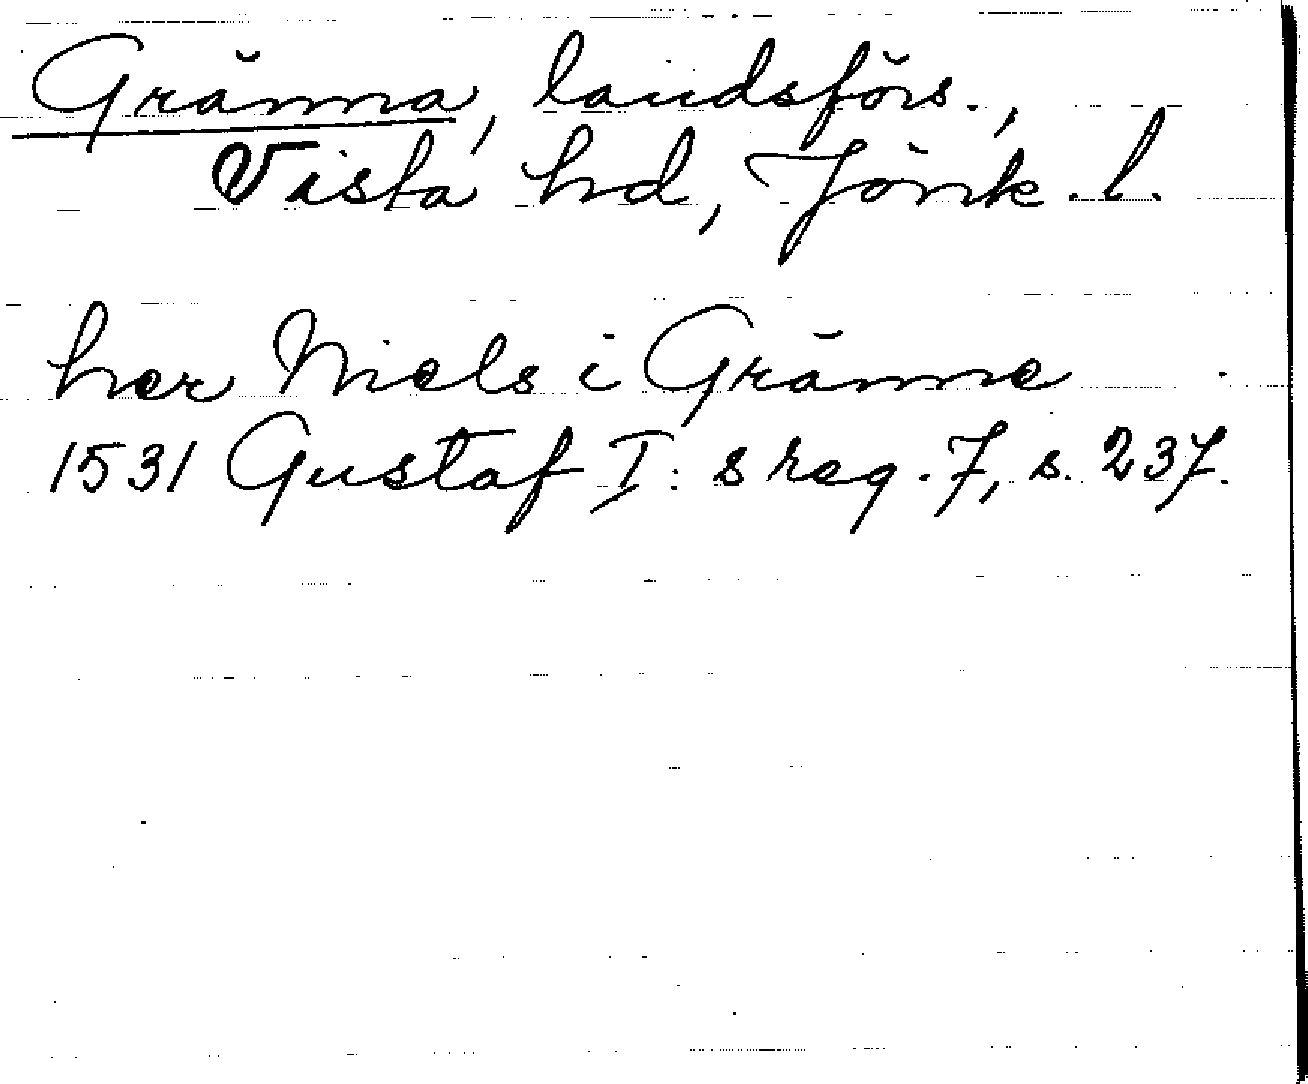 Gränna, landsförs.,
Vista hd, Jönk. l.
her Niels i Gränne
1531 Gustaf I: s reg. 7, s. 237.